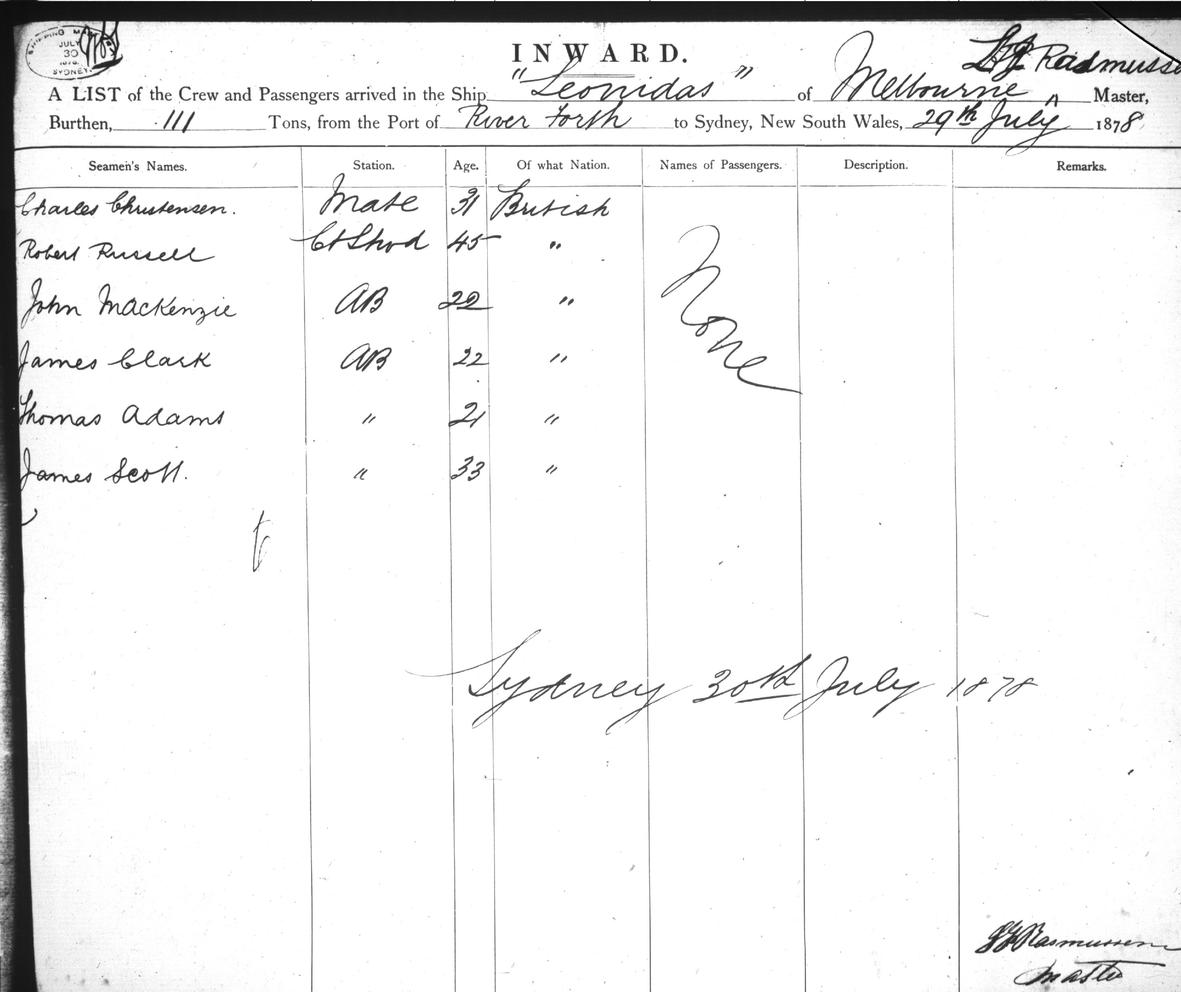 SHIPPING MA
JULY
30
1878
SYDNEY.
INWARD.
Rasmusse
A LIST of the Crew and Passengers arrived in the Ship "Leonidas" of Melbourne ^ Master,
Burthen, 111 Tons, from the Port of River Forth to Sydney, New South Wales, 29th July 1878
Seamen's Names. Station. Age. Of what Nation. Names of Passengers. Description. Remarks.
Charles Christensen. Mate 31 British
Robert Russell Ck & Stwd 45 "
John MacKenzie AB 22 "
James Clark AB 22 "
Thomas Adams " 21 "
James Scott. " 33 "
None
Sydney 30th July 1878
Rasmussen
Master